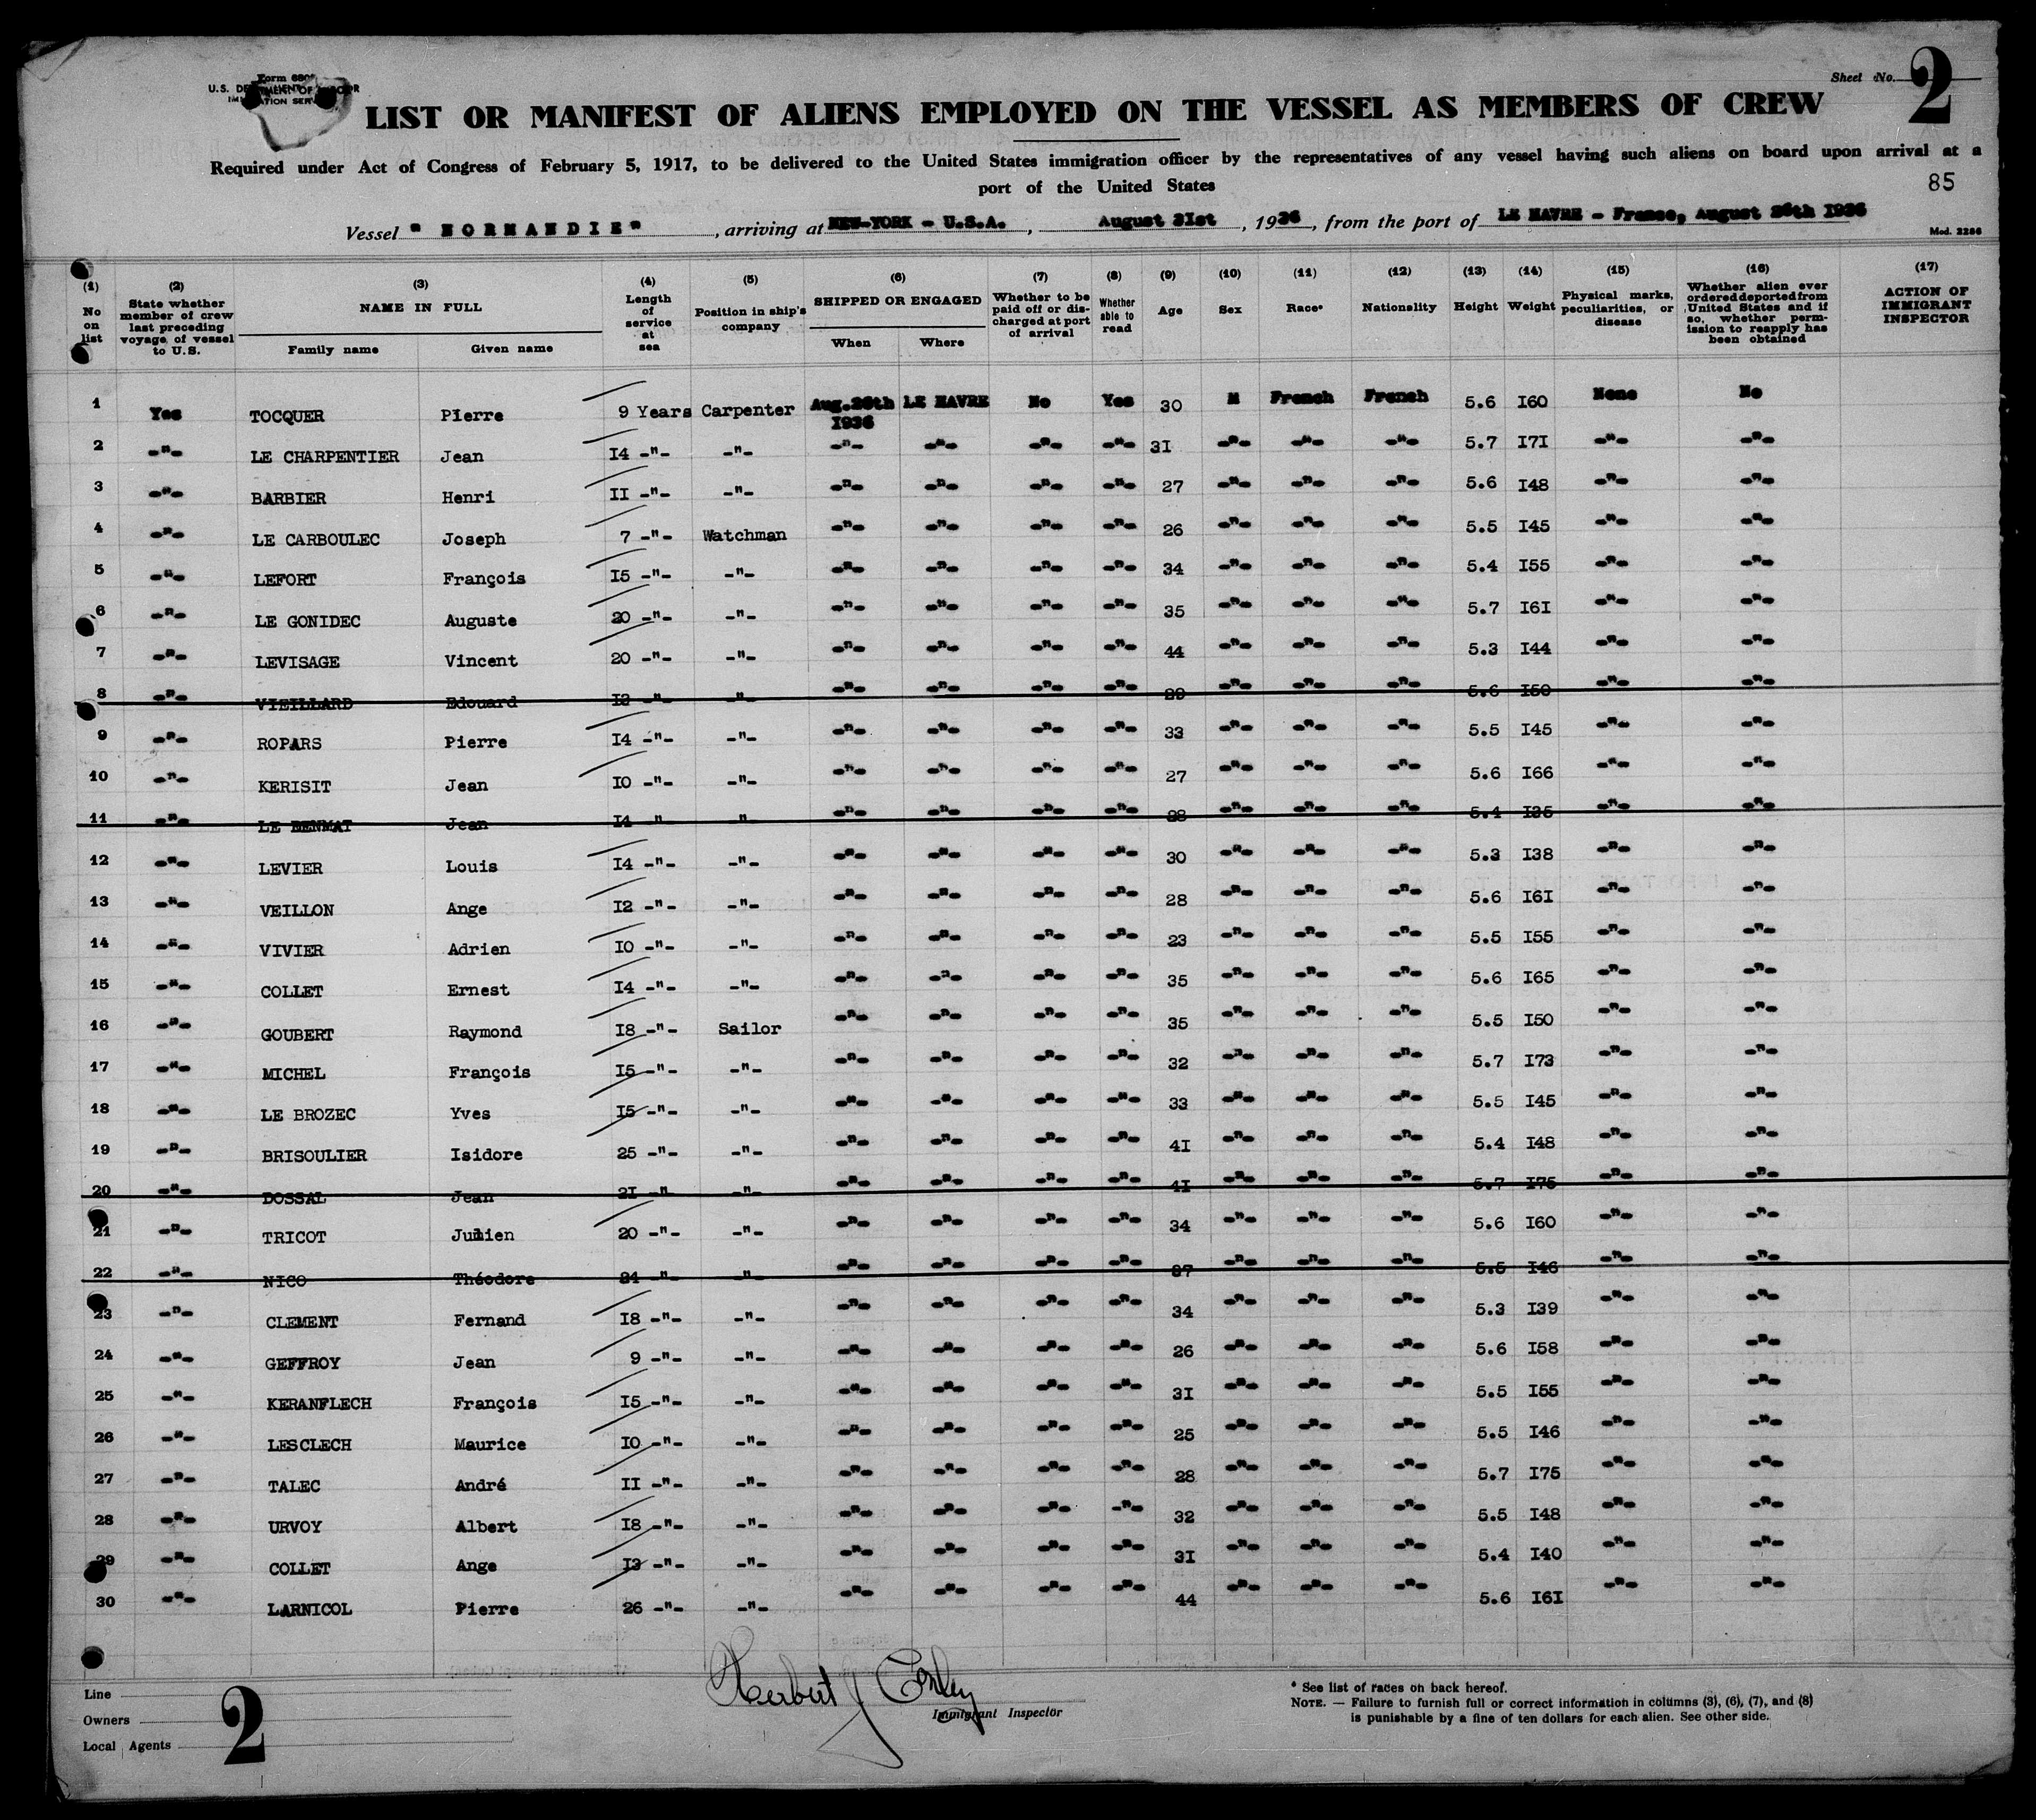 Sheet No. 2
Form 680
U.S. DEPARTMENT OF LABOR
IMMIGRATION SERVICE
LIST OR MANIFEST OF ALIENS EMPLOYED ON THE VESSEL AS MEMBERS OF CREW
Required under Act of Congress of February 5, 1917, to be delivered to the United States immigration officer by the representatives of any vessel having such aliens on board upon arrival at a
port of the United States
85
Vessel "NORMANDIE", arriving at NEW-YORK - U.S.A., August 31st, 1936, from the port of LE HAVRE - France, August 26th 1936
Mod. 2286
(1) (2) (3) (4) (5) (6) (7) (8) (9) (10) (11) (12) (13) (14) (15) (16) (17)
No on list
State whether member of crew last preceding voyage of vessel to U.S.
NAME IN FULL
Family name Given name
Length of service at sea
Position in ship's company
SHIPPED OR ENGAGED
When Where
Whether to be paid off or discharged at port of arrival
Whether able to read
Age
Sex
Race*
Nationality
Height
Weight
Physical marks, peculiarities, or disease
Whether alien ever ordered deported from United States and if so, whether permission to reapply has been obtained
ACTION OF IMMIGRANT INSPECTOR
1 Yes TOCQUER Pierre 9 Years Carpenter Aug.26th 1936 LE HAVRE No Yes 30 M French French 5.6 I60 None No
2 -"- LE CHARPENTIER Jean I4 -"- -"- -"- -"- -"- -"- 3I -"- -"- -"- 5.7 I7I -"- -"-
3 -"- BARBIER Henri II -"- -"- -"- -"- -"- -"- 27 -"- -"- -"- 5.6 I48 -"- -"-
4 -"- LE CARBOULEC Joseph 7 -"- Watchman -"- -"- -"- -"- 26 -"- -"- -"- 5.5 I45 -"- -"-
5 -"- LEFORT François I5 -"- -"- -"- -"- -"- -"- 34 -"- -"- -"- 5.4 I55 -"- -"-
6 -"- LE GONIDEC Auguste 20 -"- -"- -"- -"- -"- -"- 35 -"- -"- -"- 5.7 I6I -"- -"-
7 -"- LEVISAGE Vincent 20 -"- -"- -"- -"- -"- -"- 44 -"- -"- -"- 5.3 I44 -"- -"-
8 -"- VIEILLARD Edouard I2 -"- -"- -"- -"- -"- -"- 29 -"- -"- -"- 5.6 I50 -"- -"-
9 -"- ROPARS Pierre I4 -"- -"- -"- -"- -"- -"- 33 -"- -"- -"- 5.5 I45 -"- -"-
10 -"- KERISIT Jean I0 -"- -"- -"- -"- -"- -"- 27 -"- -"- -"- 5.6 I66 -"- -"-
11 -"- LE Jean I4 -"- -"- -"- -"- -"- -"- -"- -"- -"- 5.4 -"- -"-
12 -"- LEVIER Louis I4 -"- -"- -"- -"- -"- -"- 30 -"- -"- -"- 5.3 I38 -"- -"-
13 -"- VEILLON Ange I2 -"- -"- -"- -"- -"- -"- 28 -"- -"- -"- 5.6 I6I -"- -"-
14 -"- VIVIER Adrien I0 -"- -"- -"- -"- -"- -"- 23 -"- -"- -"- 5.5 I55 -"- -"-
15 -"- COLLET Ernest I4 -"- -"- -"- -"- -"- -"- 35 -"- -"- -"- 5.6 I65 -"- -"-
16 -"- GOUBERT Raymond I8 -"- Sailor -"- -"- -"- -"- 35 -"- -"- -"- 5.5 I50 -"- -"-
17 -"- MICHEL François I5 -"- -"- -"- -"- -"- -"- 32 -"- -"- -"- 5.7 I73 -"- -"-
18 -"- LE BROZEC Yves I5 -"- -"- -"- -"- -"- -"- 33 -"- -"- -"- 5.5 I45 -"- -"-
19 -"- BRISOULIER Isidore 25 -"- -"- -"- -"- -"- -"- 4I -"- -"- -"- 5.4 I48 -"- -"-
20 -"- DOSSAL Jean 2I -"- -"- -"- -"- -"- -"- 4I -"- -"- -"- 5.7 I75 -"- -"-
21 -"- TRICOT Julien 20 -"- -"- -"- -"- -"- -"- 34 -"- -"- -"- 5.6 I60 -"- -"-
22 -"- NICO Théodore 24 -"- -"- -"- -"- -"- -"- 37 -"- -"- -"- 5.5 I46 -"- -"-
23 -"- CLEMENT Fernand I8 -"- -"- -"- -"- -"- -"- 34 -"- -"- -"- 5.3 I39 -"- -"-
24 -"- GEFFROY Jean 9 -"- -"- -"- -"- -"- -"- 26 -"- -"- -"- 5.6 I58 -"- -"-
25 -"- KERANFLECH François I5 -"- -"- -"- -"- -"- -"- 3I -"- -"- -"- 5.5 I55 -"- -"-
26 -"- LESCLECH Maurice I0 -"- -"- -"- -"- -"- -"- 25 -"- -"- -"- 5.5 I46 -"- -"-
27 -"- TALEC André II -"- -"- -"- -"- -"- -"- 28 -"- -"- -"- 5.7 I75 -"- -"-
28 -"- URVOY Albert I8 -"- -"- -"- -"- -"- -"- 32 -"- -"- -"- 5.5 I48 -"- -"-
29 -"- COLLET Ange I3 -"- -"- -"- -"- -"- -"- 3I -"- -"- -"- 5.4 I40 -"- -"-
30 -"- LARNICOL Pierre 26 -"- -"- -"- -"- -"- -"- 44 -"- -"- -"- 5.6 I6I -"- -"-
Line
Owners
Local Agents
2
Herbert J Conley
Immigrant Inspector
* See list of races on back hereof.
NOTE. — Failure to furnish full or correct information in columns (3), (6), (7), and (8)
is punishable by a fine of ten dollars for each alien. See other side.